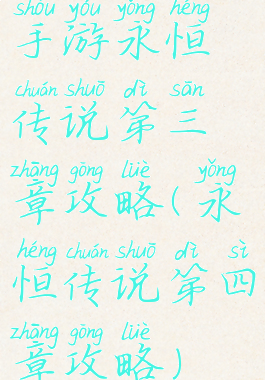 shǒu yóu yǒng héng
手游永恒
chuán shuō dì sān
传说第三
zhāng gōng lüè yǒng
章攻略(永
héng chuán shuō dì sì
恒传说第四
zhāng gōng lüè
章攻略)